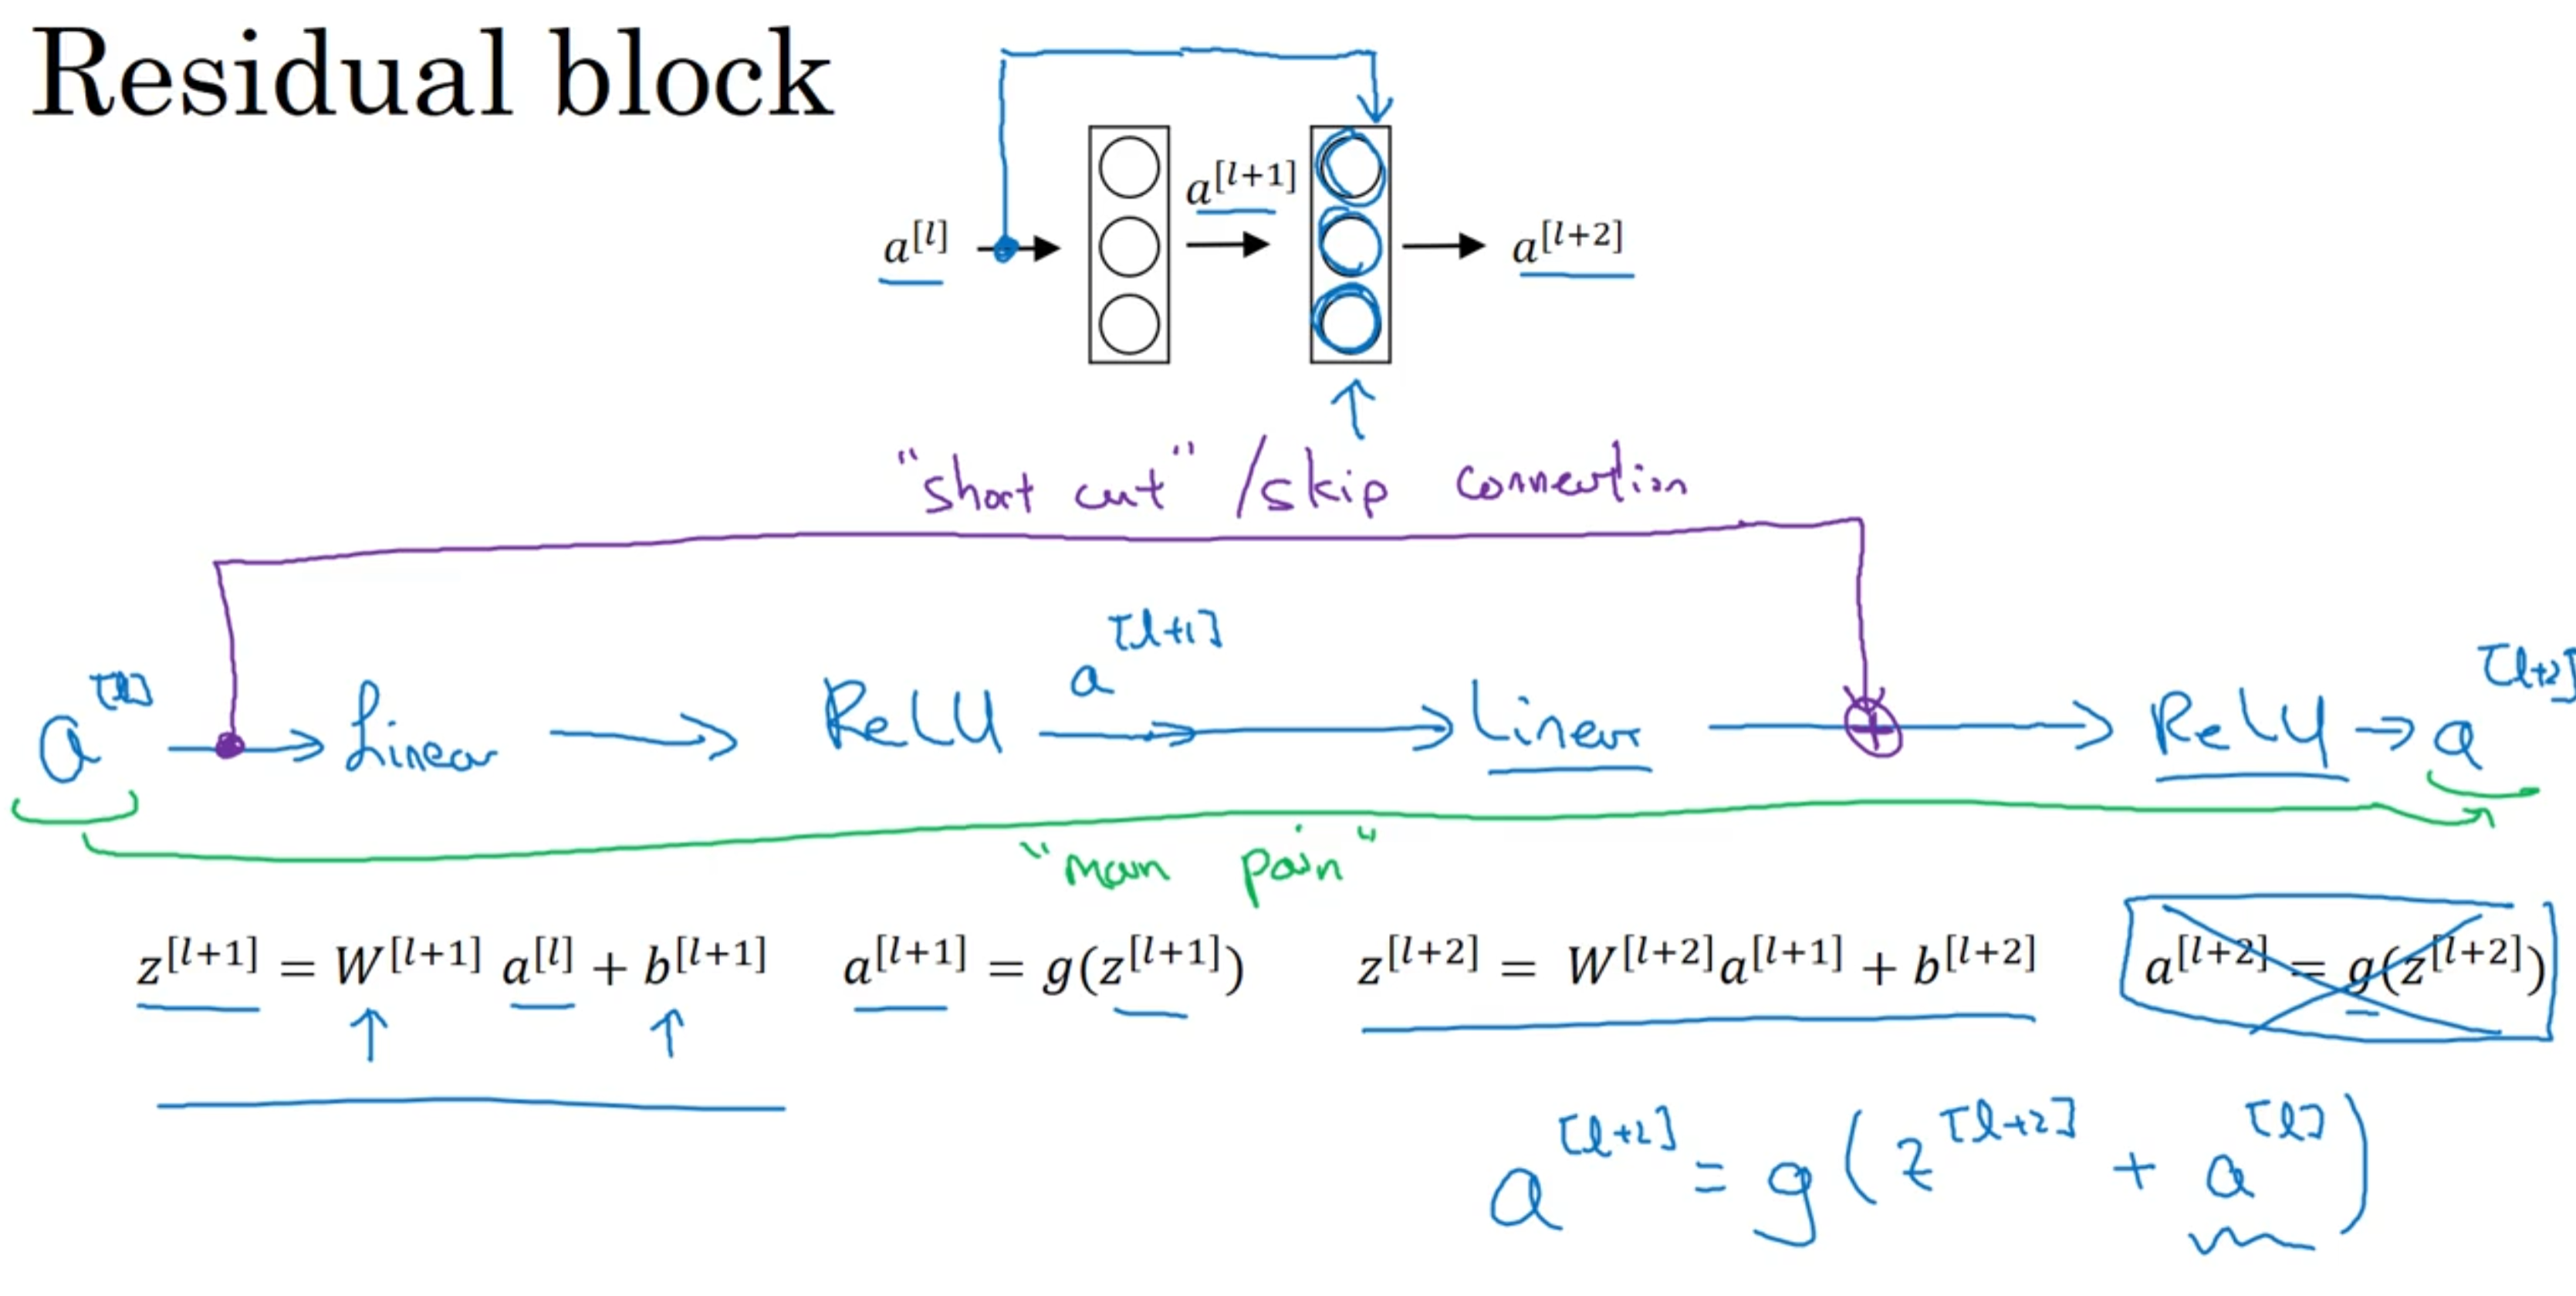 Residual block
a^[l] a^[l+1] a^[l+2]
"short cut" / skip connection
a^[l] → Linear → ReLU a^[l+1] → Linear → + → ReLU → a^[l+2]
"main path"
z^[l+1] = W^[l+1] a^[l] + b^[l+1] a^[l+1] = g(z^[l+1]) z^[l+2] = W^[l+2] a^[l+1] + b^[l+2] a^[l+2] = g(z^[l+2])
a^[l+2] = g(z^[l+2] + a^[l])